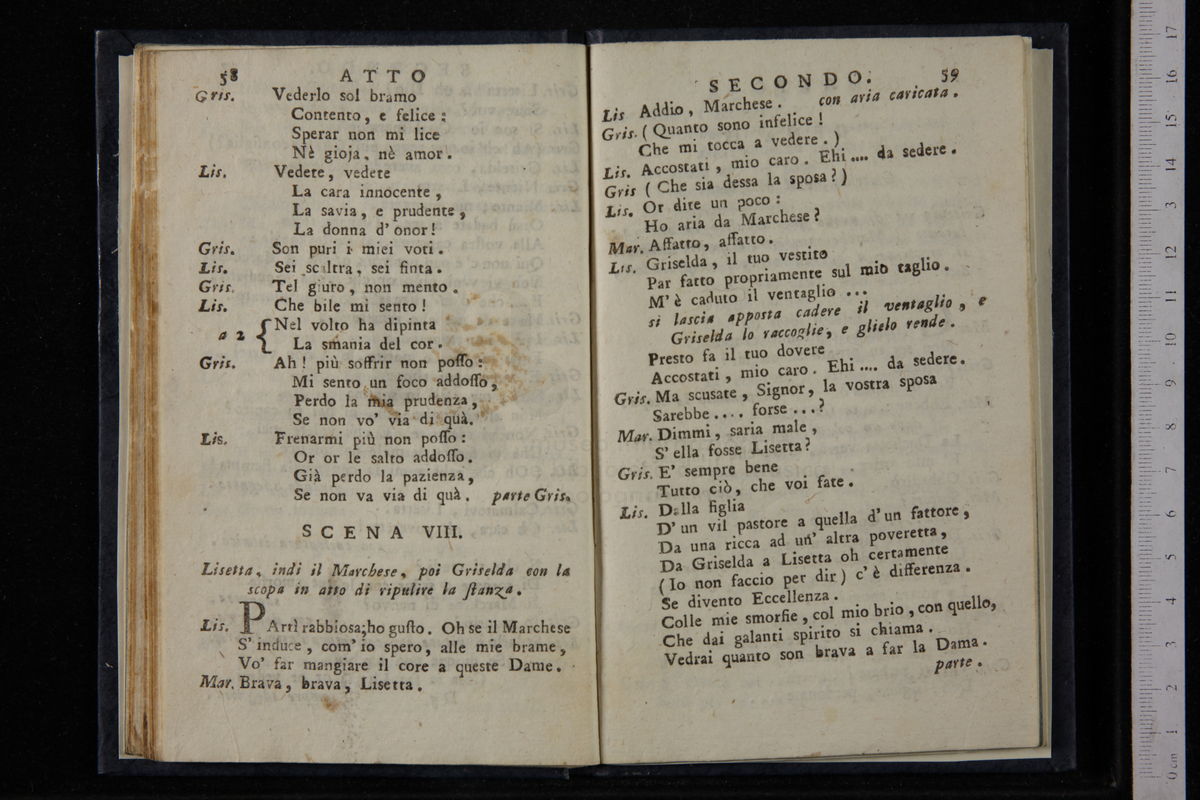 58 ATTO
Gris. Vederlo sol bramo
Contento, e felice:
Sperar non mi lice
Nè gioja, nè amor.
Lis. Vedete, vedete
La cara innocente,
La savia, e prudente,
La donna d' onor!
Gris. Son puri i miei voti.
Lis. Sei scaltra, sei finta.
Gris. Tel giuro, non mento.
Lis. Che bile mi sento!
a 2 { Nel volto ha dipinta
La smania del cor.
Gris. Ah! più soffrir non posso:
Mi sento un foco addosso,
Perdo la mia prudenza,
Se non vo' via di quà.
Lis. Frenarmi più non posso:
Or or le salto addosso.
Già perdo la pazienza,
Se non va via di quà. parte Gris.
SCENA VIII.
Lisetta, indi il Marchese, poi Griselda con la
scopa in atto di ripulire la stanza.
Lis. PArtì rabbiosa; ho gusto. Oh se il Marchese
S' induce, com' io spero, alle mie brame,
Vo' far mangiare il core a queste Dame.
Mar. Brava, brava, Lisetta.
SECONDO. 59
Lis Addio, Marchese. con aria caricata.
Gris. (Quanto sono infelice!
Che mi tocca a vedere.)
Lis. Accostati, mio caro. Ehi.... da sedere.
Gris (Che sia dessa la sposa?)
Lis. Or dite un poco:
Ho aria da Marchese?
Mar. Affatto, affatto.
Lis. Griselda, il tuo vestito
Par fatto propriamente sul mio taglio.
M' è caduto il ventaglio ...
si lascia apposta cadere il ventaglio, e
Griselda lo raccoglie, e glielo rende.
Presto fa il tuo dovere
Accostati, mio caro. Ehi.... da sedere.
Gris. Ma scusate, Signor, la vostra sposa
Sarebbe.... forse...?
Mar. Dimmi, saria male,
S' ella fosse Lisetta?
Gris. E' sempre bene
Tutto ciò, che voi fate.
Lis. Dalla figlia
D' un vil pastore a quella d' un fattore,
Da una ricca ad un' altra poveretta,
Da Griselda a Lisetta oh certamente
(Io non faccio per dir) c' è differenza.
Se divento Eccellenza.
Colle mie smorfie, col mio brio, con quello,
Che dai galanti spirito si chiama.
Vedrai quanto son brava a far la Dama.
parte.
0 cm 1 2 3 4 5 6 7 8 9 10 11 12 13 14 15 16 17